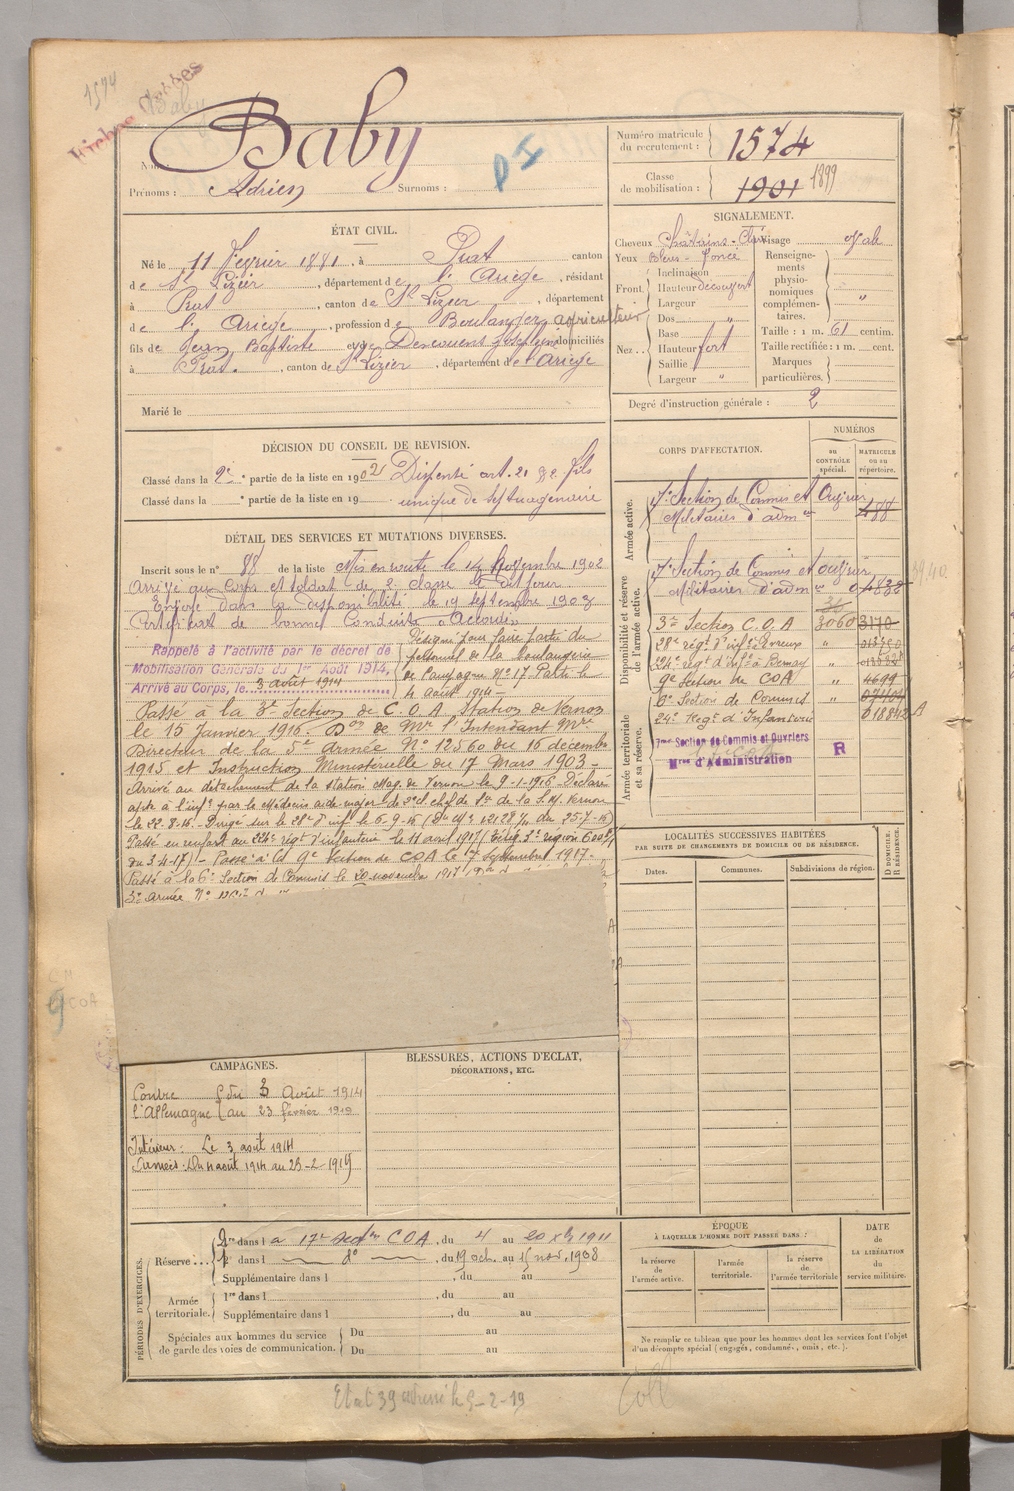 1574
Baby
Baby
Nom :
Prénoms : Adrien Surnoms :
Numéro matricule du recrutement : 1574
Classe de mobilisation : 1901 1899
ÉTAT CIVIL.
Né le 11 Février 1881, à Prat canton
de St Lizier, département de l'Ariège, résidant
à Prat, canton de St Lizier, département
de l'Ariège, profession de Boulanger agriculteur
fils de Jean Baptiste et de domiciliés
à Prat, canton de St Lizier, département de l'Ariège
Marié le
SIGNALEMENT.
Cheveux Châtains-Clair Visage ovale
Yeux Bleu-foncé
Front. Inclinaison
Hauteur découvert
Largeur
Nez. Dos "
Base
Hauteur fort
Saillie
Largeur "
Renseignements physionomiques complémentaires. "
Taille : 1 m. 61 centim.
Taille rectifiée : 1 m. cent.
Marques particulières.
Degré d'instruction générale : 2
DÉCISION DU CONSEIL DE REVISION.
Classé dans la 2e partie de la liste en 1902 Dispensé art. 21 fils
Classé dans la e partie de la liste en 19 unique de septuagénaire
DÉTAIL DES SERVICES ET MUTATIONS DIVERSES.
Inscrit sous le n° 88 de la liste Mis en route le 14 Novembre 1902
Arrivé au Corps et soldat de 2e classe le dit jour
Envoyé dans la disponibilité le 19 septembre 1903
Certificat de bonne Conduite "Accordé"
Rappelé à l'activité par le décret de
Mobilisation Générale du 1er Août 1914,
Arrivé au Corps, le 3 août 1914
Désigné pour faire partie du
personnel de la boulangerie
de Campagne N° 17 Parti le
4 août 1914 -
Passé à la 3e Section de C.O.A, Station de Vernon
le 15 Janvier 1916. Don de Mr l'Intendant Mre
Directeur de la 5e Armée N° 12560 du 16 décembre
1915 et Instruction Ministérielle du 17 Mars 1903 -
Arrivé au détachement de la Station Mag. de Vernon le 9-1-1916 - Déclaré
apte à l'inf. par le Médecin aide major de 2e cl chef de de la S.M. Vernon
le 22.8.16. Dirigé sur le 28e d'inf le 6-9-16 (du 25-7-16)
Passé en renfort au 224e régt d'infanterie le 11 avril 1917 ( 3e région
du 3-4-17) - Passé à la 9e Section de COA le 7 septembre 1917 -
Passé à la 6e Section de Commis le 20 novembre 1917
5e Armée N°
CORPS D'AFFECTATION.
NUMÉROS
au CONTRÔLE spécial.
MATRICULE ou au répertoire.
Armée active.
7e Section de Commis et Ouvriers
Militaires d'admon 488
Disponibilité et réserve de l'armée active.
7e Section de Commis et ouvriers
Militaires d'admon
3e Section C.O.A 3060 3170
28e régt d'inf. à Evreux "
224e régt d'inf. à Bernay "
9e Section de COA " 4699
6e Section de Commis "
24e Régt d'Infanterie
Armée territoriale et sa réserve.
7me Section de Commis et Ouvriers
Mres d'Administration R
LOCALITÉS SUCCESSIVES HABITÉES
PAR SUITE DE CHANGEMENTS DE DOMICILE OU DE RÉSIDENCE.
Dates. Communes. Subdivisions de région. D DOMICILE. R RÉSIDENCE.
9 COA
CAMPAGNES.
Contre l'Allemagne du 3 Août 1914
au 23 février 1919
Intérieur : Le 3 août 1914
Armées : Du 4 août 1914 au 23-2-1919
BLESSURES, ACTIONS D'ECLAT,
DÉCORATIONS, ETC.
PÉRIODES D'EXERCICES.
Réserve... dans la 17e Sect COA, du 4 au 20 Xbre 1911
dans l d°, du 19 oct. au 15 nov. 1908
Supplémentaire dans l , du au
Armée territoriale. 1re dans l , du au
Supplémentaire dans l , du au
Spéciales aux hommes du service de garde des voies de communication. Du au
Du au
ÉPOQUE
À LAQUELLE L'HOMME DOIT PASSER DANS :
la réserve de l'armée active.
l'armée territoriale.
la réserve de l'armée territoriale
DATE de LA LIBÉRATION du service militaire.
Ne remplir ce tableau que pour les hommes dont les services font l'objet
d'un décompte spécial (engagés, condamnés, omis, etc.).
Etat 39 adressé le 5-2-19